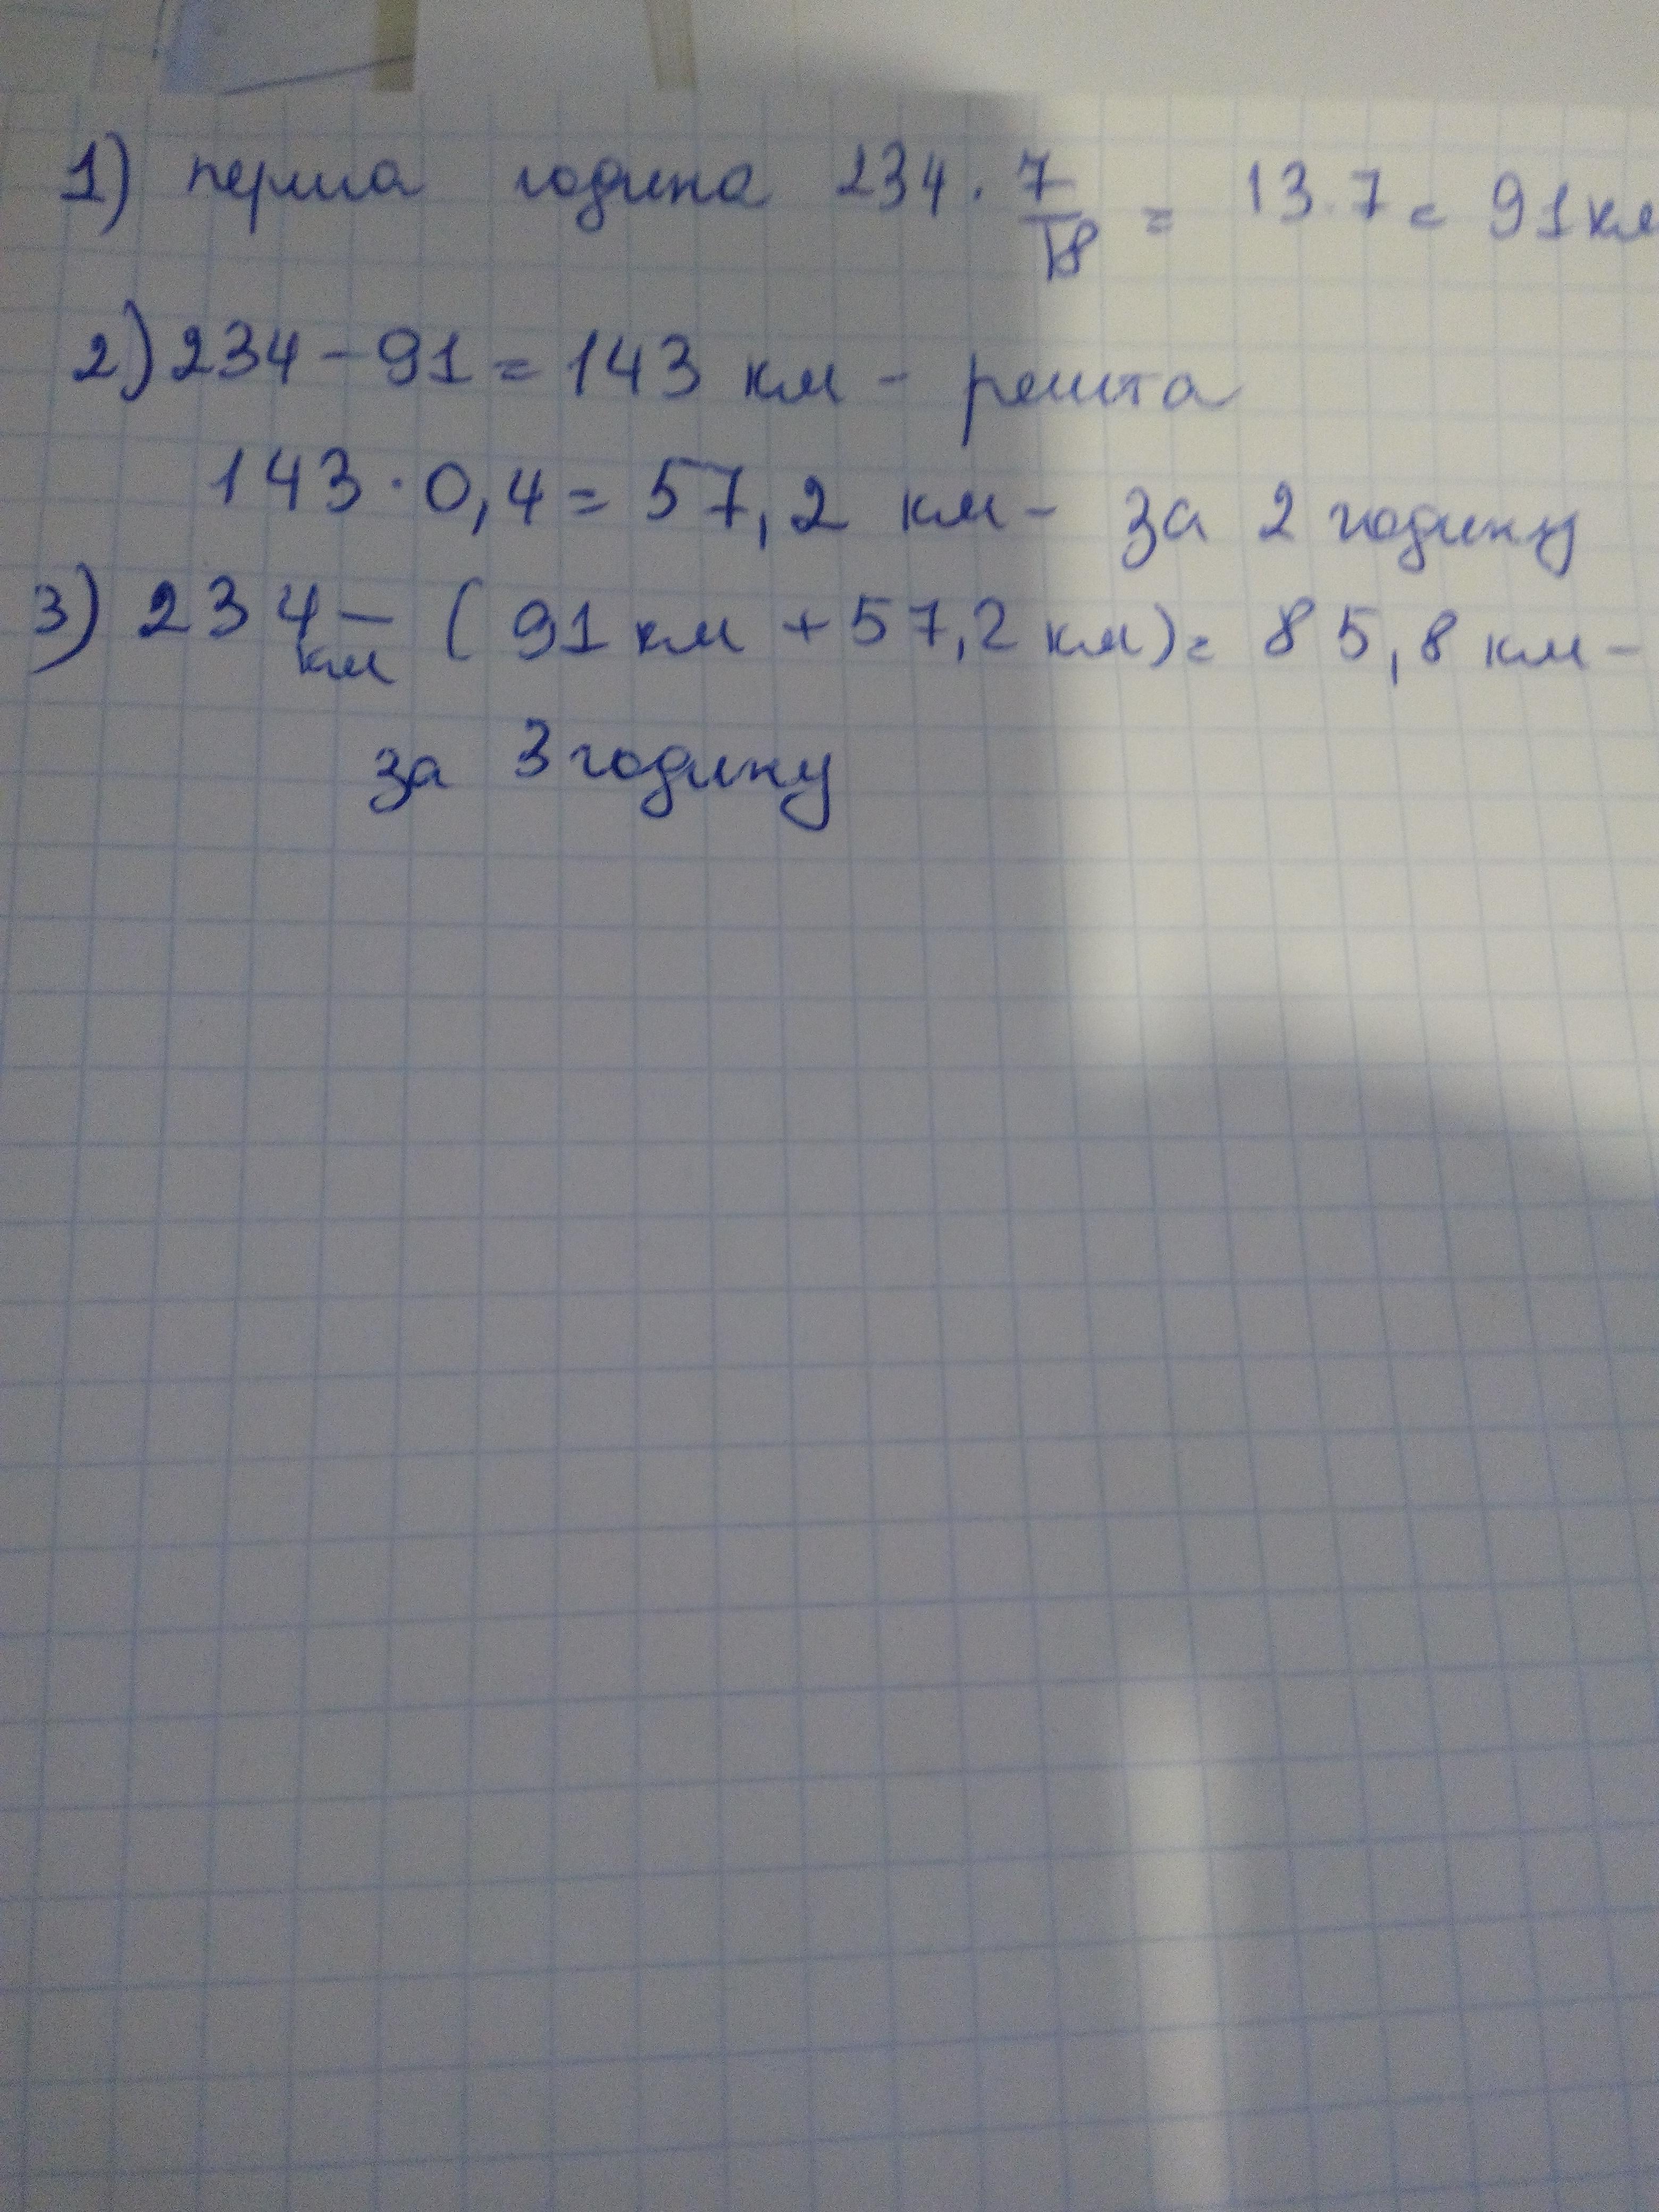 1) перша година 234 · 7/18 = 13·7 = 91 км
2) 234 – 91 = 143 км – решта
143 · 0,4 = 57,2 км – за 2 годину
3) 234 км – (91 км + 57,2 км) = 85,8 км –
за 3 годину